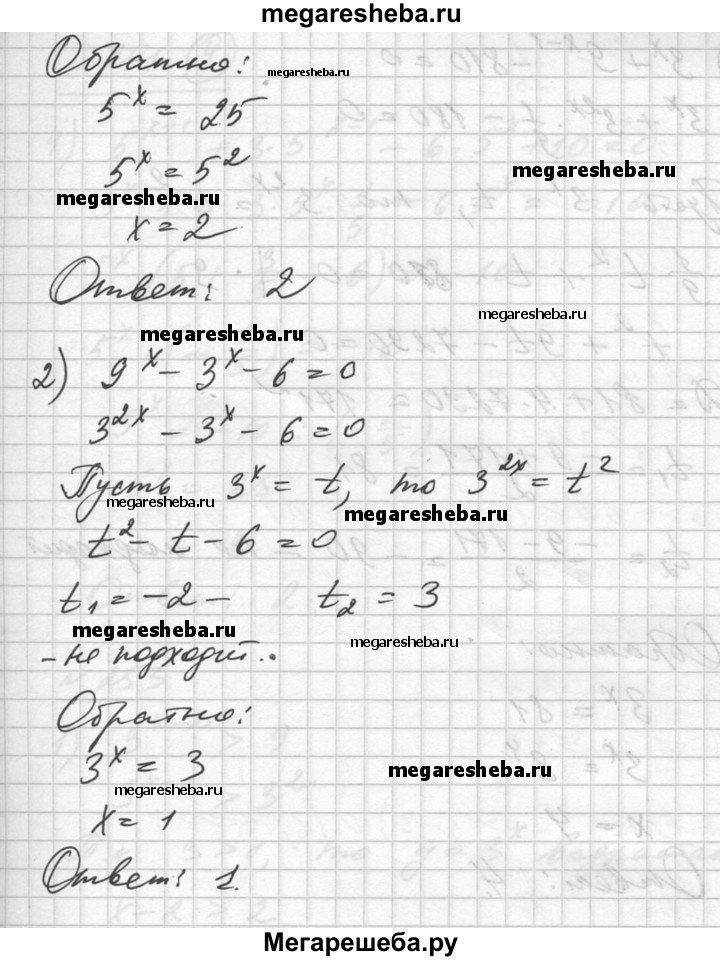 megaresheba.ru
Обратно: megaresheba.ru
5^x = 25
5^x = 5^2
megaresheba.ru
megaresheba.ru
x = 2
Ответ: 2
megaresheba.ru
megaresheba.ru
2) 9^x - 3^x - 6 = 0
3^{2x} - 3^x - 6 = 0
Пусть 3^x = t, то 3^{2x} = t^2
megaresheba.ru
megaresheba.ru
t^2 - t - 6 = 0
t_1 = -2 - t_2 = 3
megaresheba.ru
megaresheba.ru
- не подходит.
Обратно:
3^x = 3
megaresheba.ru
megaresheba.ru
x = 1
Ответ: 1.
Мегарешеба.ру